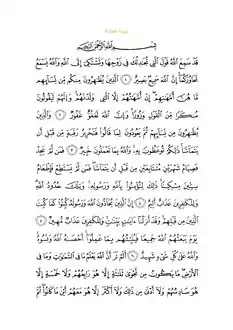 بِسْمِ اللَّهِ الرَّحْمَٰنِ الرَّحِيمِ
قَدْ سَمِعَ اللَّهُ قَوْلَ الَّتِي تُجَادِلُكَ فِي زَوْجِهَا وَتَشْتَكِي إِلَى اللَّهِ وَاللَّهُ يَسْمَعُ
تَحَاوُرَكُمَا إِنَّ اللَّهَ سَمِيعٌ بَصِيرٌ ۝ الَّذِينَ يُظَاهِرُونَ مِنْكُمْ مِنْ نِسَائِهِمْ
مَا هُنَّ أُمَّهَاتِهِمْ إِنْ أُمَّهَاتُهُمْ إِلَّا اللَّائِي وَلَدْنَهُمْ وَإِنَّهُمْ لَيَقُولُونَ
مُنْكَرًا مِنَ الْقَوْلِ وَزُورًا وَإِنَّ اللَّهَ لَعَفُوٌّ غَفُورٌ ۝ وَالَّذِينَ
يُظَاهِرُونَ مِنْ نِسَائِهِمْ ثُمَّ يَعُودُونَ لِمَا قَالُوا فَتَحْرِيرُ رَقَبَةٍ مِنْ قَبْلِ أَنْ
يَتَمَاسَّا ذَٰلِكُمْ تُوعَظُونَ بِهِ وَاللَّهُ بِمَا تَعْمَلُونَ خَبِيرٌ ۝ فَمَنْ لَمْ يَجِدْ
فَصِيَامُ شَهْرَيْنِ مُتَتَابِعَيْنِ مِنْ قَبْلِ أَنْ يَتَمَاسَّا فَمَنْ لَمْ يَسْتَطِعْ فَإِطْعَامُ
سِتِّينَ مِسْكِينًا ذَٰلِكَ لِتُؤْمِنُوا بِاللَّهِ وَرَسُولِهِ وَتِلْكَ حُدُودُ اللَّهِ
وَلِلْكَافِرِينَ عَذَابٌ أَلِيمٌ ۝ إِنَّ الَّذِينَ يُحَادُّونَ اللَّهَ وَرَسُولَهُ كُبِتُوا كَمَا كُبِتَ
الَّذِينَ مِنْ قَبْلِهِمْ وَقَدْ أَنْزَلْنَا آيَاتٍ بَيِّنَاتٍ وَلِلْكَافِرِينَ عَذَابٌ مُهِينٌ ۝
يَوْمَ يَبْعَثُهُمُ اللَّهُ جَمِيعًا فَيُنَبِّئُهُمْ بِمَا عَمِلُوا أَحْصَاهُ اللَّهُ وَنَسُوهُ
وَاللَّهُ عَلَىٰ كُلِّ شَيْءٍ شَهِيدٌ ۝ أَلَمْ تَرَ أَنَّ اللَّهَ يَعْلَمُ مَا فِي السَّمَاوَاتِ وَمَا فِي
الْأَرْضِ مَا يَكُونُ مِنْ نَجْوَىٰ ثَلَاثَةٍ إِلَّا هُوَ رَابِعُهُمْ وَلَا خَمْسَةٍ إِلَّا
هُوَ سَادِسُهُمْ وَلَا أَدْنَىٰ مِنْ ذَٰلِكَ وَلَا أَكْثَرَ إِلَّا هُوَ مَعَهُمْ أَيْنَ مَا كَانُوا ثُمَّ